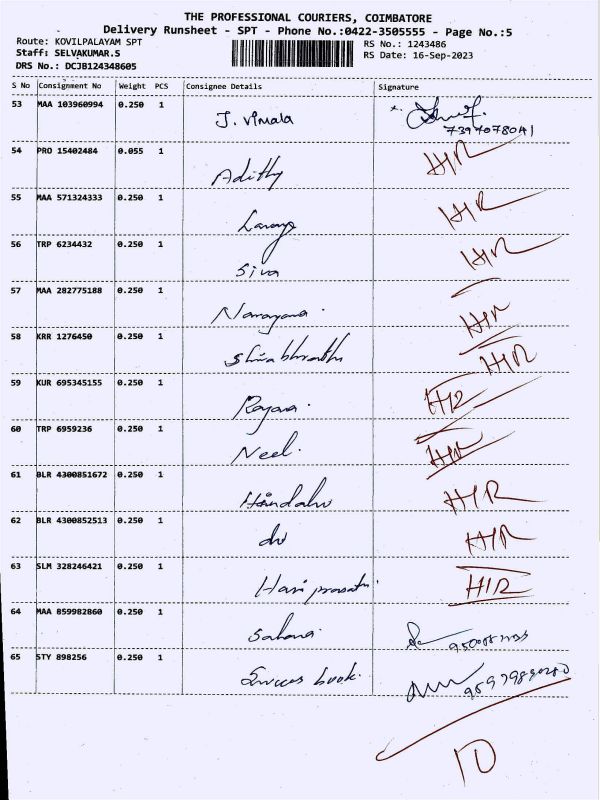 THE PROFESSIONAL COURIERS, COIMBATORE
Delivery Runsheet - SPT - Phone No.:0422-3505555 - Page No.:5
Route: KOVILPALAYAM SPT
Staff: SELVAKUMAR.S
DRS No.: DCJB124348605
RS No.: 1243486
RS Date: 16-Sep-2023
S No Consignment No Weight PCS Consignee Details Signature
53 MAA 103960994 0.250 1 J. Vimala
7397078041
54 PRO 15402484 0.055 1 Adithy HIR
55 MAA 571324333 0.250 1 HIR
56 TRP 6234432 0.250 1 Siva HIR
57 MAA 282775188 0.250 1 Narayana. HIR
58 KRR 1276450 0.250 1 HIR
59 KUR 695345155 0.250 1 HIR
60 TRP 6959236 0.250 1 Neel. HIR
61 BLR 4300851672 0.250 1 HIR
62 BLR 4300852513 0.250 1 do HIR
63 SLM 328246421 0.250 1 Hari HIR
64 MAA 859982860 0.250 1 Sahana
65 STY 898256 0.250 1 book.